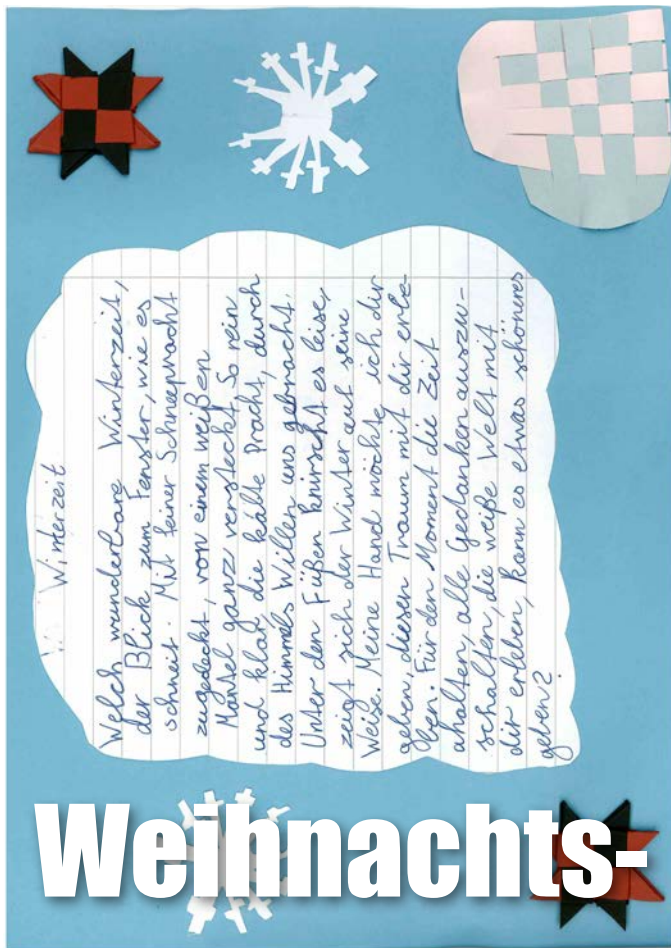 Winterzeit
Welch wunderbare Winterzeit,
der Blick zum Fenster, wie es
schneit. Mit feiner Schneepracht
zugedeckt, von einem weißen
Mantel ganz versteckt. So rein
und klar die kälte Pracht, durch
des Himmels Willen uns gebracht.
Unter den Füßen knirscht es leise,
zeigt sich der Winter auf seine
Weise. Meine Hand möchte ich dir
geben, diesen Traum mit dir erle-
ben. Für den Moment die Zeit
ahalten, alle Gedanken auszu-
schalten, die weiße Welt mit
dir erleben, kann es etwas schöneres
geben?
Weihnachts-